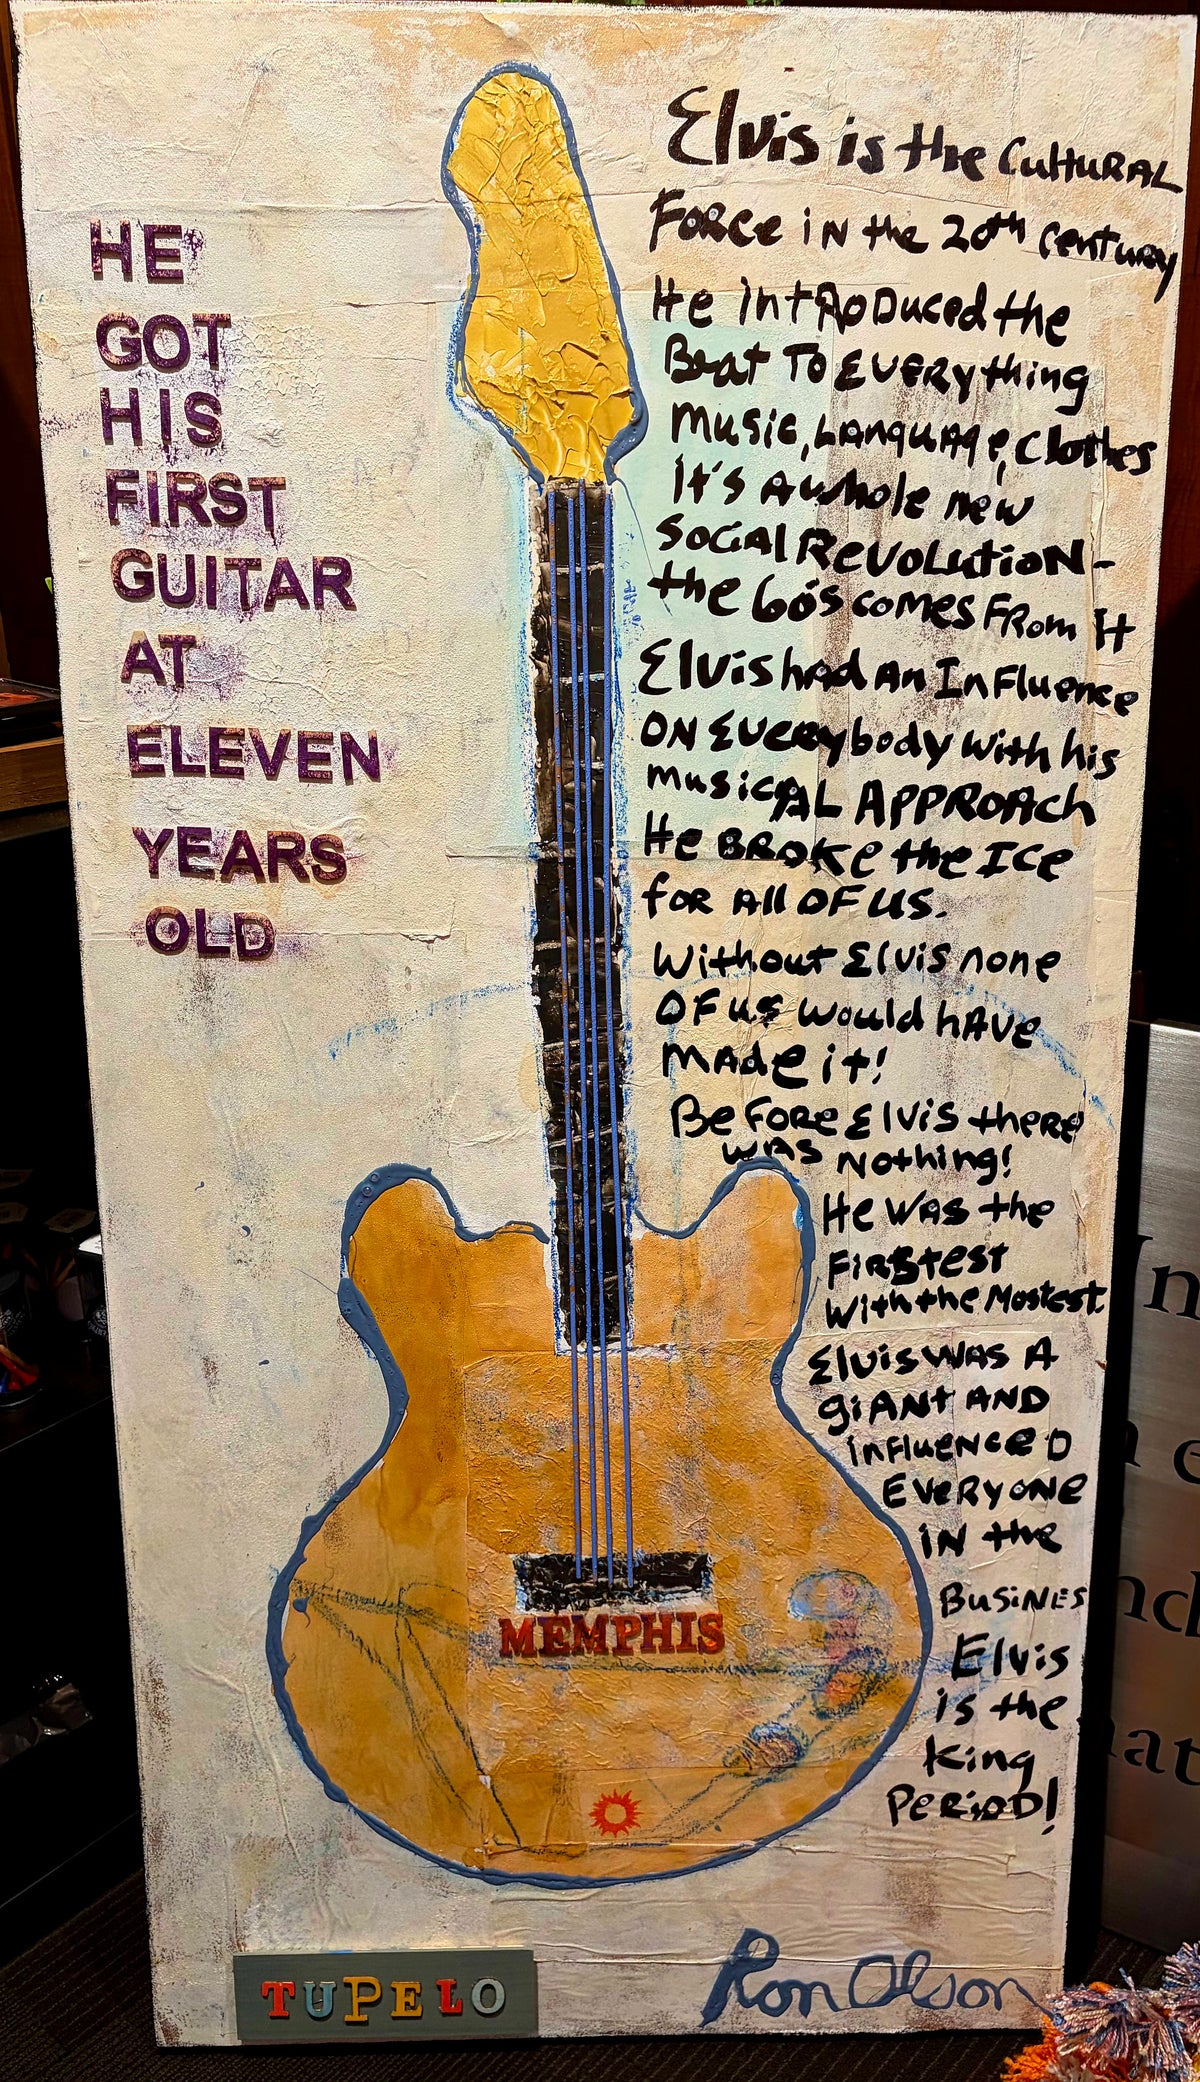 HE
GOT
HIS
FIRST
GUITAR
AT
ELEVEN
YEARS
OLD
Elvis is the CultuRAL
FoRce iN the 20th Century
He intRoDuced the
Beat To EVERything
Music, LANquage, Clothes
It's A whole new
SOCiAl ReVOLutioN-
the 60's comes FRom It
Elvis had AN InFluence
ON EVERybody with his
musicAL APPROACh
He BROKe the ICe
foR All OF US.
Without Elvis none
OF us would hAVe
mAde it!
BeFoRe Elvis theRe
wAS Nothing!
He WAS the
FiRstest
With the Mostest.
Elvis WAS A
giANt AND
inFluENceD
EVeRyONE
iN the
BusiNES
Elvis
is the
King
PeRiOD!
MEMPHIS
TUPELO
Ron Olson
n
n e
nd
at